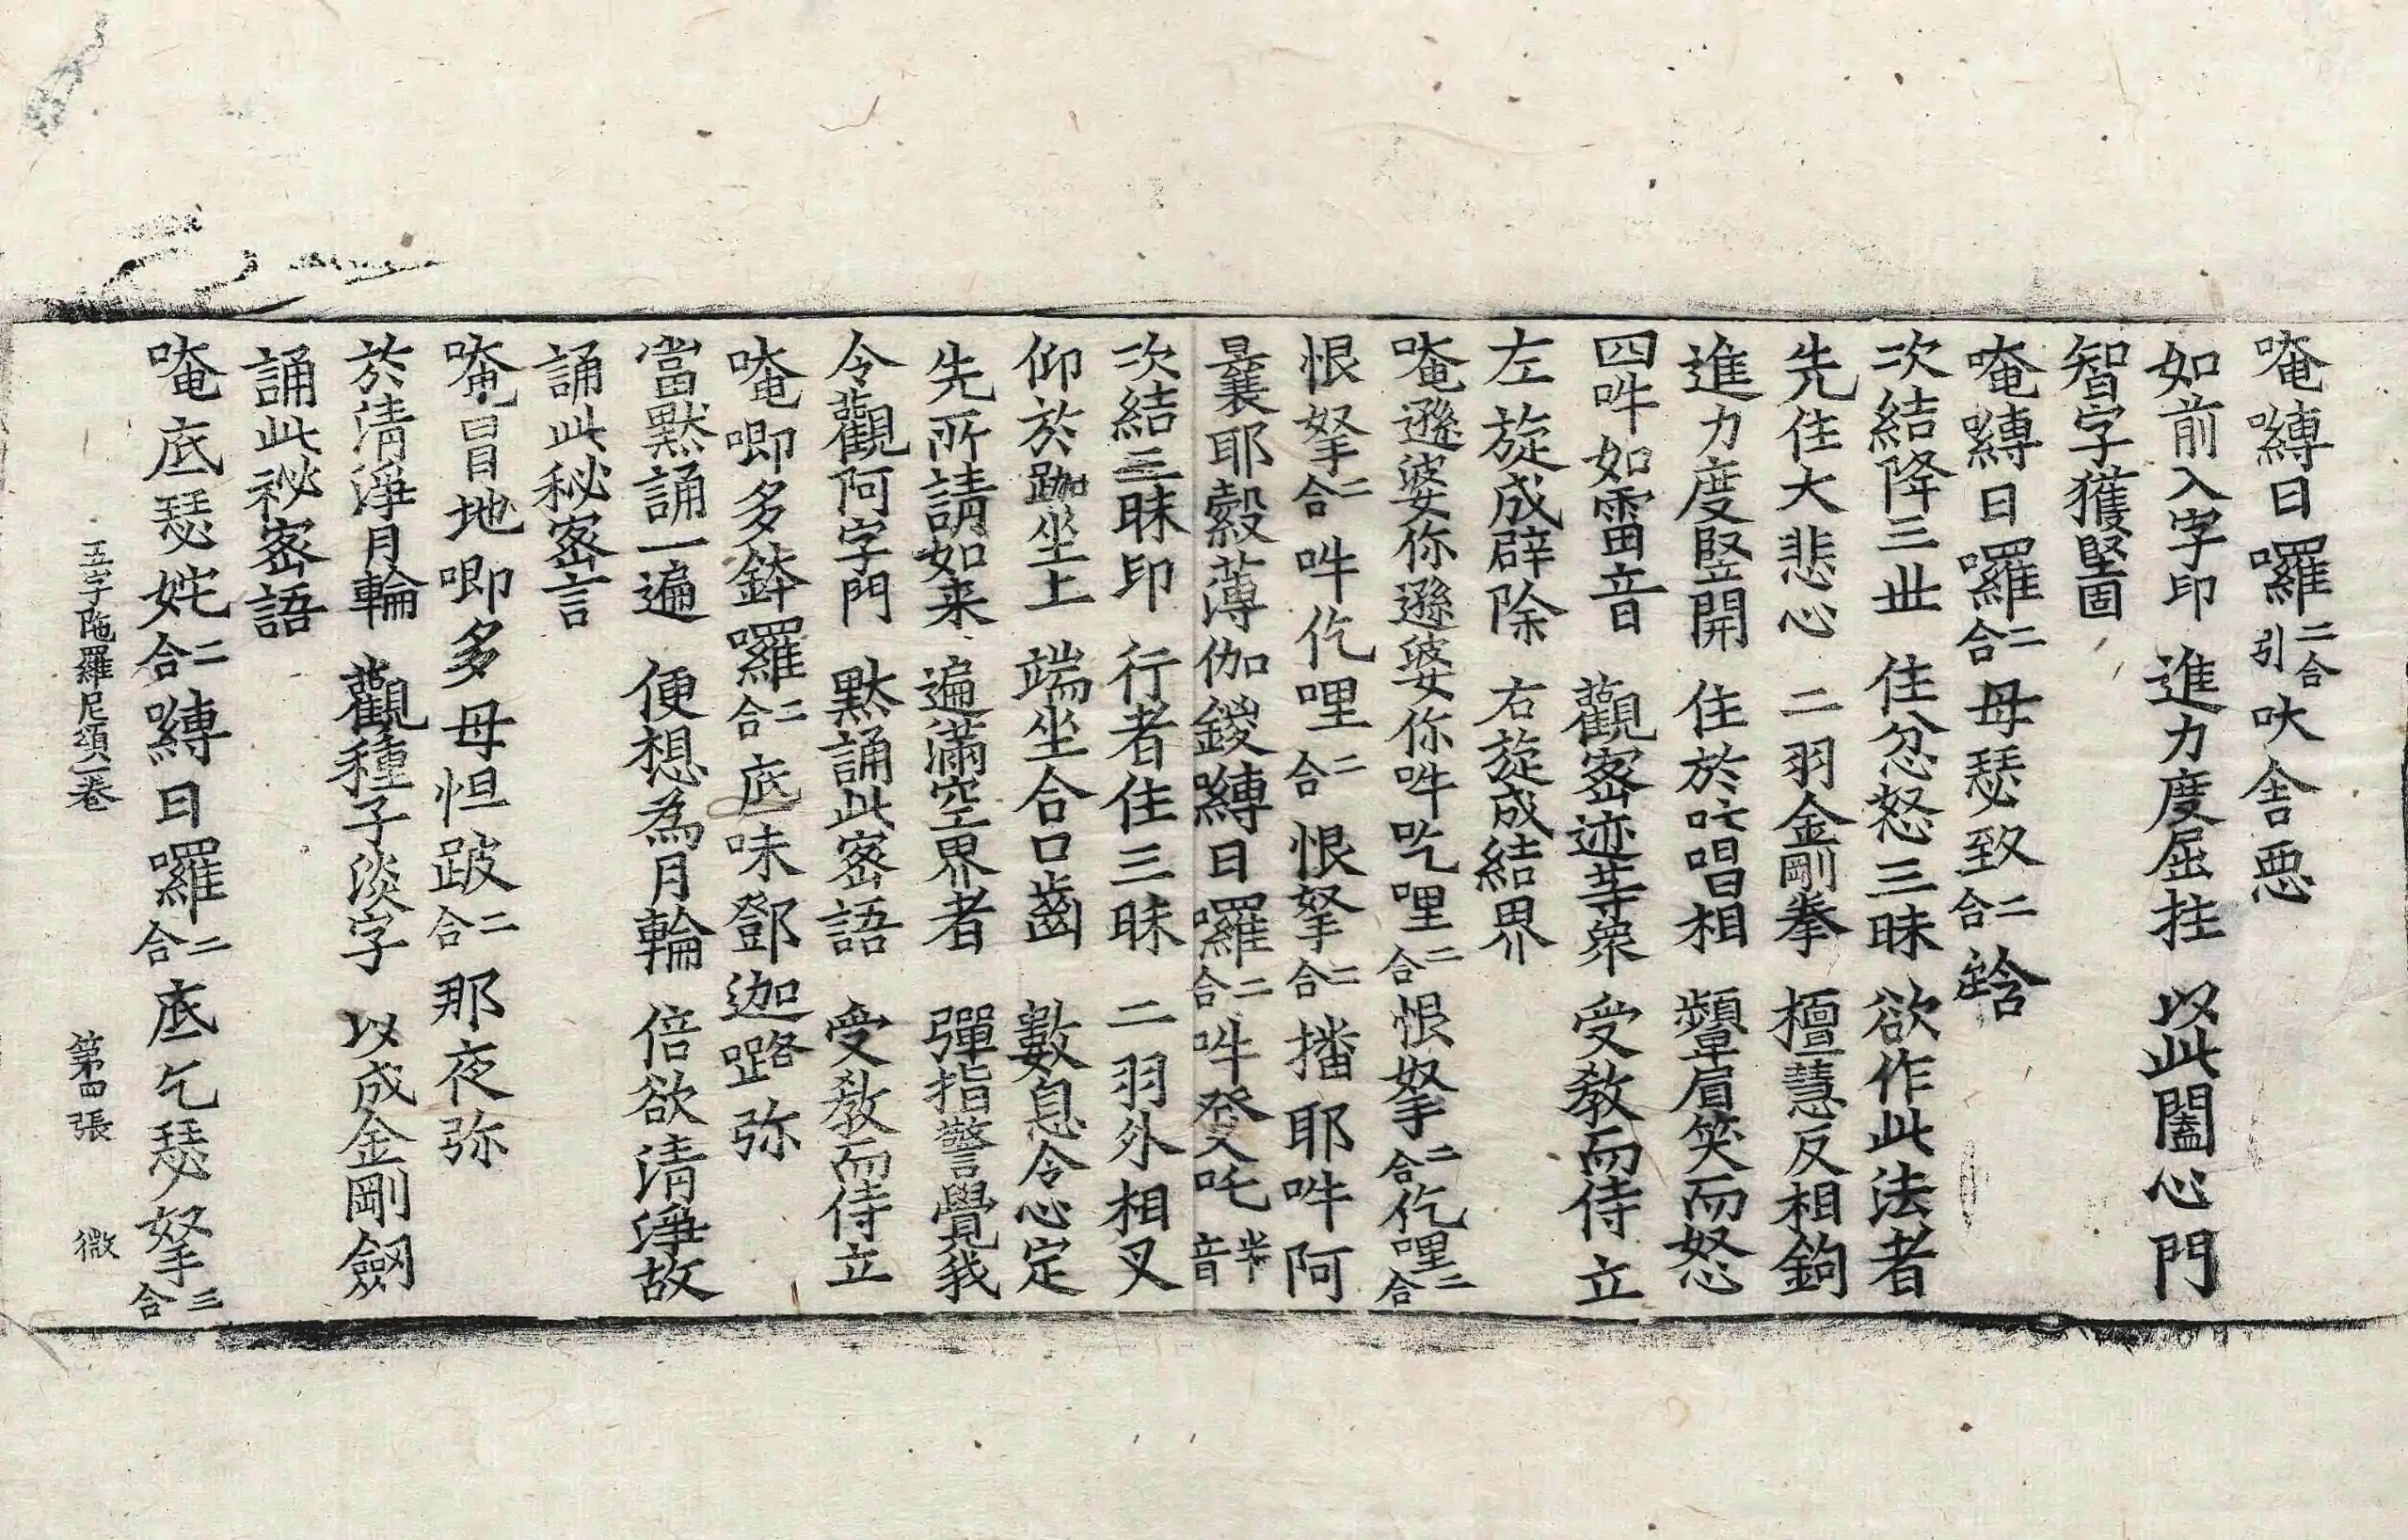 唵嚩日囉二合引吠舍惡
如前入字印 進力度屈拄 以此闔心門
智字獲堅固
唵嚩日囉二合母瑟致二合鋡
次結降三世 住忿怒三昧 欲作此法者
先住大悲心 二羽金剛拳 檀慧反相鉤
進力度竪開 住於吒唱相 顰眉笑而怒
四吽如雷音 觀密迹等衆 受教而侍立
左旋成辟除 右旋成結界
唵遜婆你遜婆你吽吃哩二合恨拏二合仡哩二合
恨拏二合吽仡哩二合恨拏二合播耶吽阿
曩耶縠薄伽鍐嚩日囉二合吽癹吒半音
次結三昧印 行者住三昧 二羽外相叉
仰於跏坐上 端坐合口齒 數息令心定
先所請如来 遍滿空界者 彈指警覺我
令觀阿字門 黙誦此密語 受教而侍立
唵唧多鉢囉二合底味鄧迦嚕弥
當黙誦一遍 便想為月輪 倍欲清淨故
誦此秘密言
唵冒地唧多母怛跛二合那夜弥
於清淨月輪 觀種子淡字 以成金剛劒
誦此祕密語
唵底瑟姹二合嚩日囉二合底乞瑟拏三合
五字陁羅尼頌一卷 第四張 微